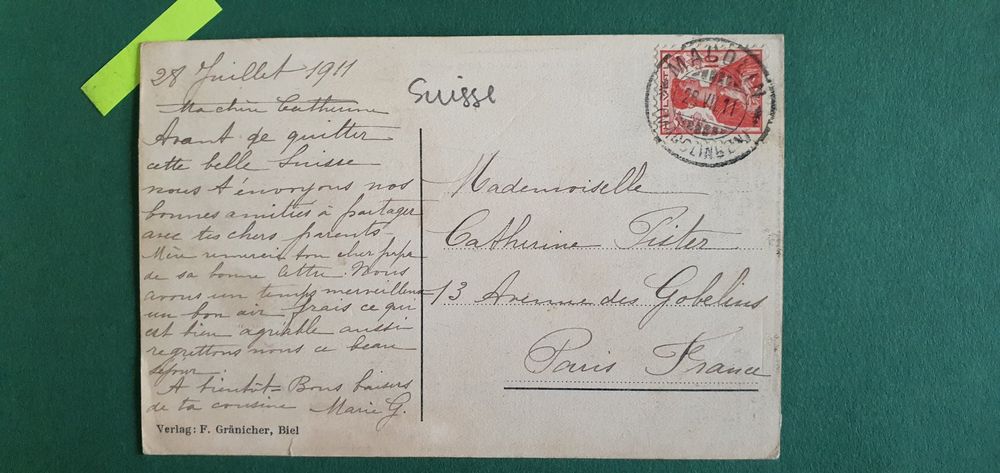 28 Juillet 1911
Ma chère Catherine
Avant de quitter
cette belle Suisse
nous t'envoyons nos
bonnes amitiés à partager
avec tes chers parents -
Mère remercie ton cher papa
de sa bonne lettre. Nous
avons un temps merveilleux
un bon air frais ce qui
est bien agréable aussi
regrettons nous ce beau
séjour.
A bientôt - Bons baisers
de ta cousine Marie G.
Verlag: F. Gränicher, Biel
Suisse
HELVETIA
MAGGLINGEN
Mademoiselle
Catherine Pister
13 Avenue des Gobelins
Paris France